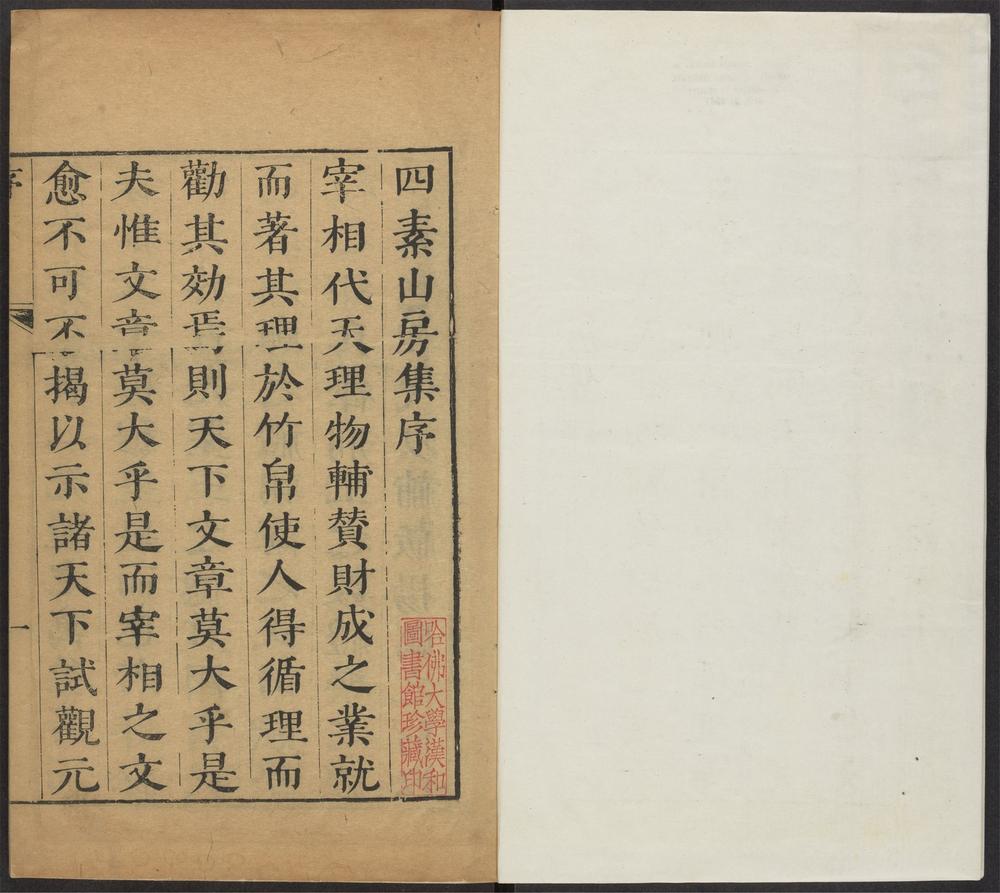 四素山房集序
宰相代天理物輔贊財成之業就
而著其理於竹帛使人得循理而
勸其効焉則天下文章莫大乎是
夫惟文章莫大乎是而宰相之文
愈不可不揭以示諸天下試觀元
序
一
哈佛大學漢和
圖書館珍藏印